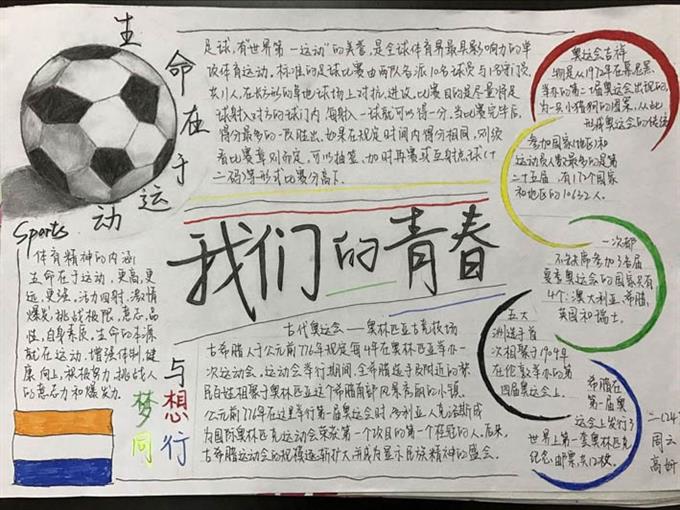 生命在于运动
足球,有"世界第一运动"的美誉,是全球体育界最具影响力的单
项体育运动。标准的足球比赛由两队各派10名球员与1名守门员
共11人,在长方形的草地球场上对抗、进攻。比赛目的是尽量将足
球射入对方的球门内,每射入一球就可以得一分,当比赛完毕后,
得分最多的一队胜出。如果在规定时间内得分相同,则须
看比赛章则而定,可以抽签、加时再赛或互射点球(十
二码)等形式比赛分高下。
Sports
体育精神的内涵:
生命在于运动,更高,更
远,更强,活力四射,激情
爆发,挑战极限,意志,品
性,自身素质,生命的本源
就在运动,增强体制,健
康向上,积极努力,挑战人
的意志力和爆发力。
我们的青春
与梦想同行
古代奥运会——奥林匹亚古竞技场
古希腊人于公元前776年规定每4年在奥林匹亚举办一
次运动会。运动会举行期间,全希腊选手及附近的黎
民百姓相聚于奥林匹亚这个希腊南部风景秀丽的小镇。
公元前776年在这里举行第一届奥运会时,多利亚人克洛斯成
为国际奥林匹克运动会荣获第一个项目的第一个桂冠的人。后来,
古希腊运动会的规模逐渐扩大并成为显示民族精神的盛会。
奥运会吉祥
物是从1972年在慕尼黑
举办的第二十届奥运会出现的,
为一只小猎狗的图案,从此
形成奥运会的传统
参加国家(地区)和
运动员人数最多的是第
二十五届,有172个国家
和地区的10632人。
一次都
不缺席参加了各届
夏季奥运会的国家只有
4个:澳大利亚,希腊,
英国和瑞士。
五大
洲选手首
次相聚于1904年
在伦敦举办的第
四届奥运会上。
希腊在
第一届奥
运会上发行了
世界上第一套奥林匹克
纪念邮票,共12枚。
二(24)
周云
高妍